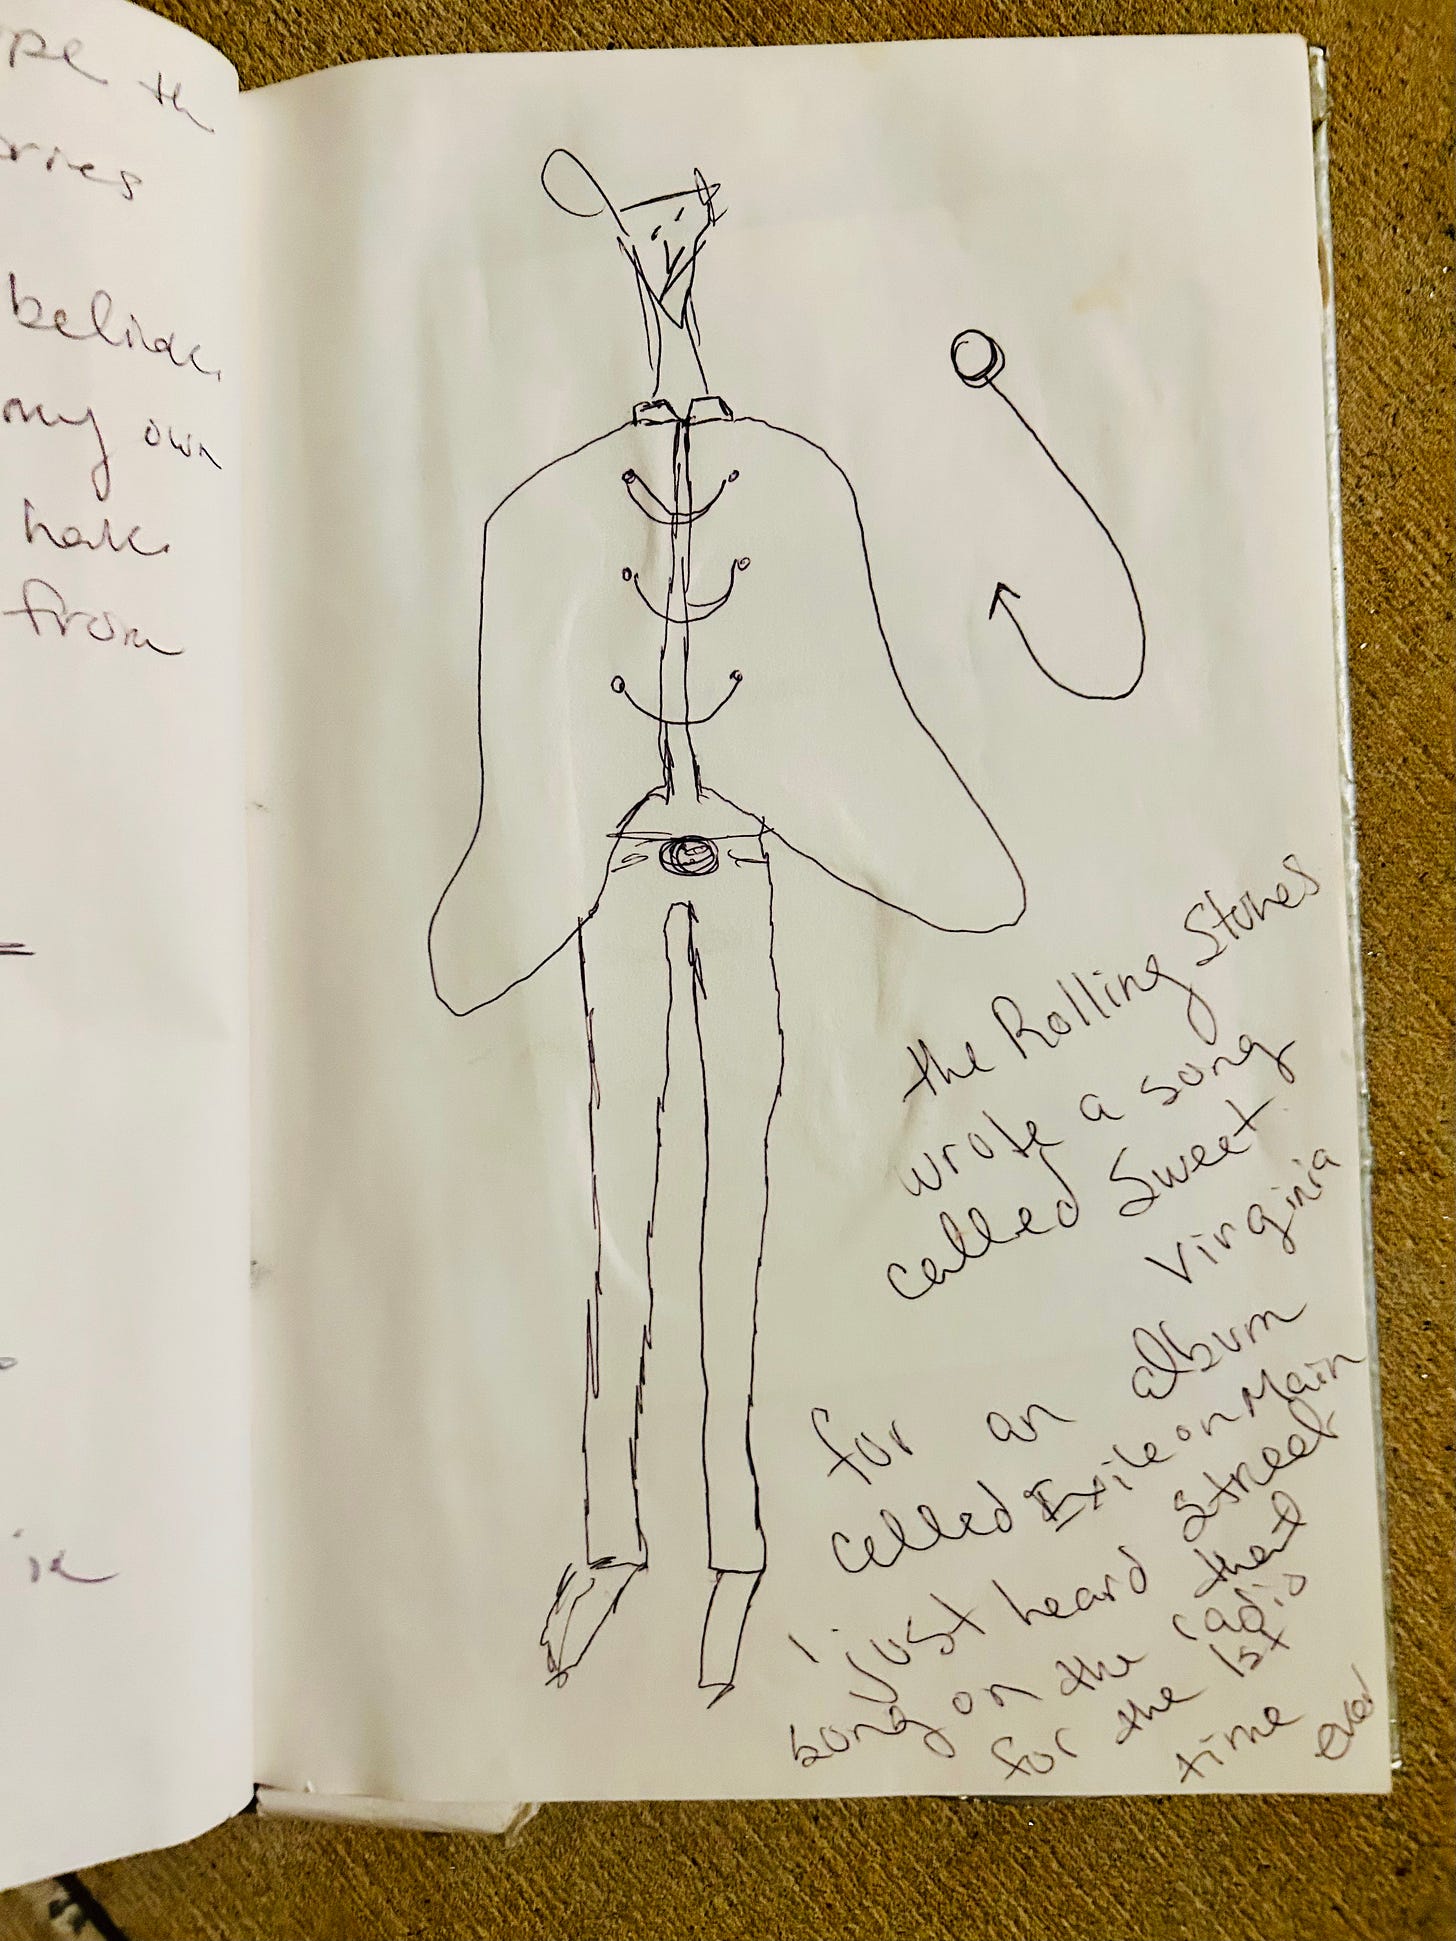 th
beliac
my own
from
the Rolling Stones
wrote a song
called Sweet
Virginia
for an album
called Exile on Main
Street
I just heard that
song on the radio
for the 1st
time ever